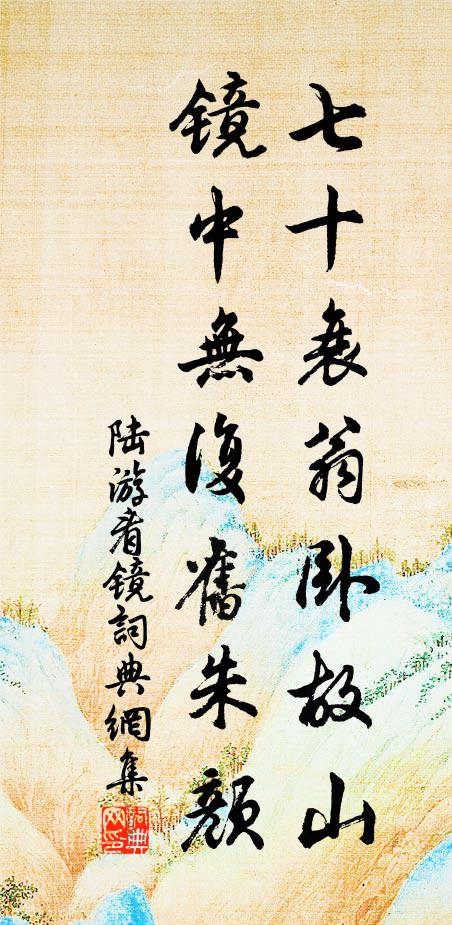 七十衰翁卧故山
镜中無復舊朱顔
陆游看镜詞典網集
詞典網印